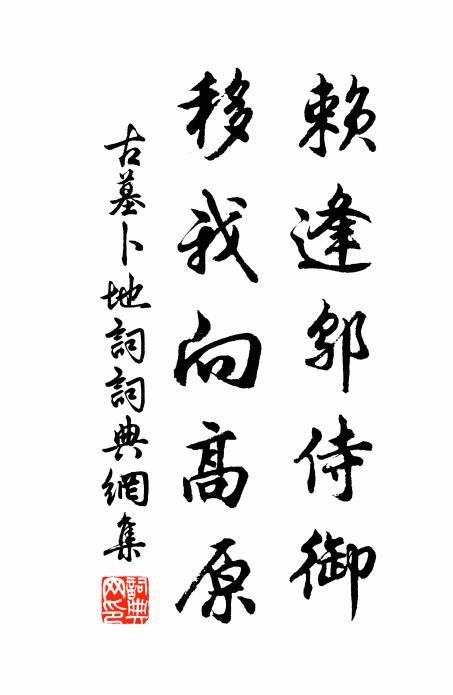 賴逢鄔侍御
移我向高原
古墓卜地詞詞典網集
詞典网印